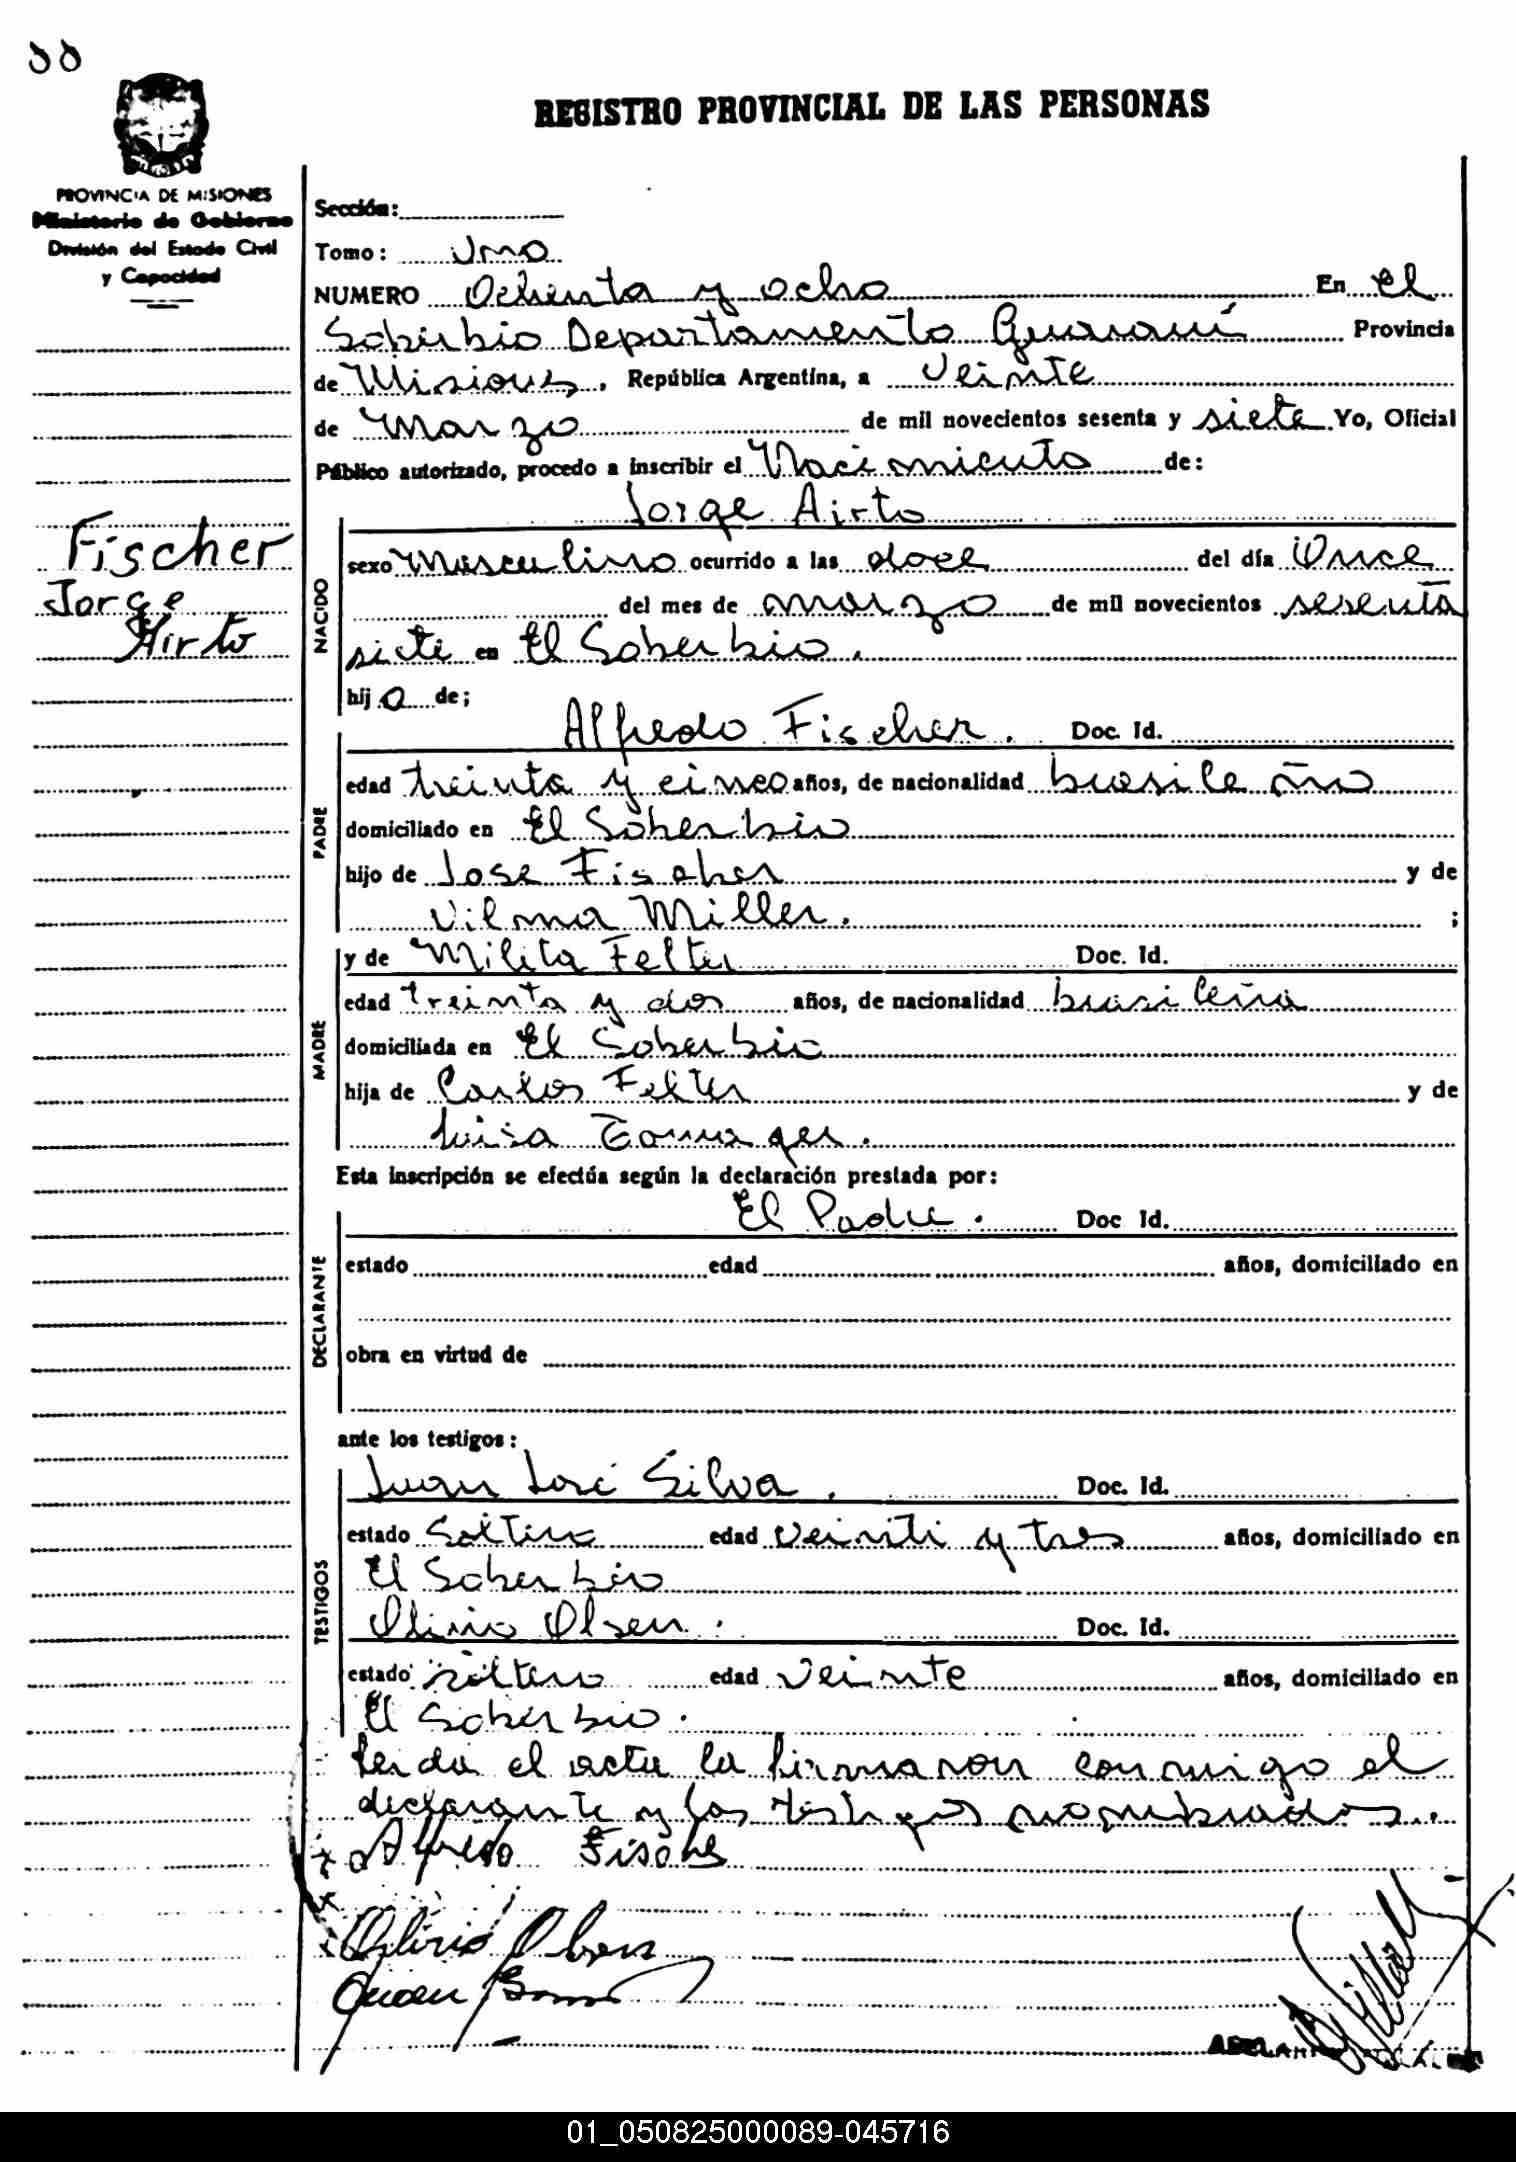 88
REGISTRO PROVINCIAL DE LAS PERSONAS
PROVINCIA DE MISIONES
Ministerio de Gobierno
División del Estado Civil
y Capacidad
Sección:
Tomo: Uno
NUMERO Ochenta y ocho En El
Soberbio Departamento Guaraní Provincia
de Misiones, República Argentina, a Veinte
de Marzo de mil novecientos sesenta y siete Yo, Oficial
Público autorizado, procedo a inscribir el Nacimiento de:
Fischer
Jorge
Airto
NACIDO
Jorge Airto
sexo Masculino ocurrido a las doce del día Once
del mes de marzo de mil novecientos sesenta
siete en El Soberbio.
hijo de;
PADRE
Alfredo Fischer. Doc. Id.
edad treinta y cinco años, de nacionalidad brasileño
domiciliado en El Soberbio
hijo de Jose Fischer y de
Vilma Miller. ;
MADRE
y de Milita Felter Doc. Id.
edad treinta y dos años, de nacionalidad brasileña
domiciliada en El Soberbio
hija de Carlos Felter y de
Luisa
Esta inscripción se efectúa según la declaración prestada por:
DECLARANTE
El Padre. Doc Id.
estado edad años, domiciliado en
obra en virtud de
ante los testigos:
TESTIGOS
Juan José Silva. Doc. Id.
estado Soltero edad veinti y tres años, domiciliado en
El Soberbio
Olirio Olsen. Doc. Id.
estado soltero edad veinte años, domiciliado en
El Soberbio.
Leida el acta la firmaron conmigo el
declarante y los testigos nombrados.
Alfredo Fischer
Olirio Olsen
Juan
01_050825000089-045716